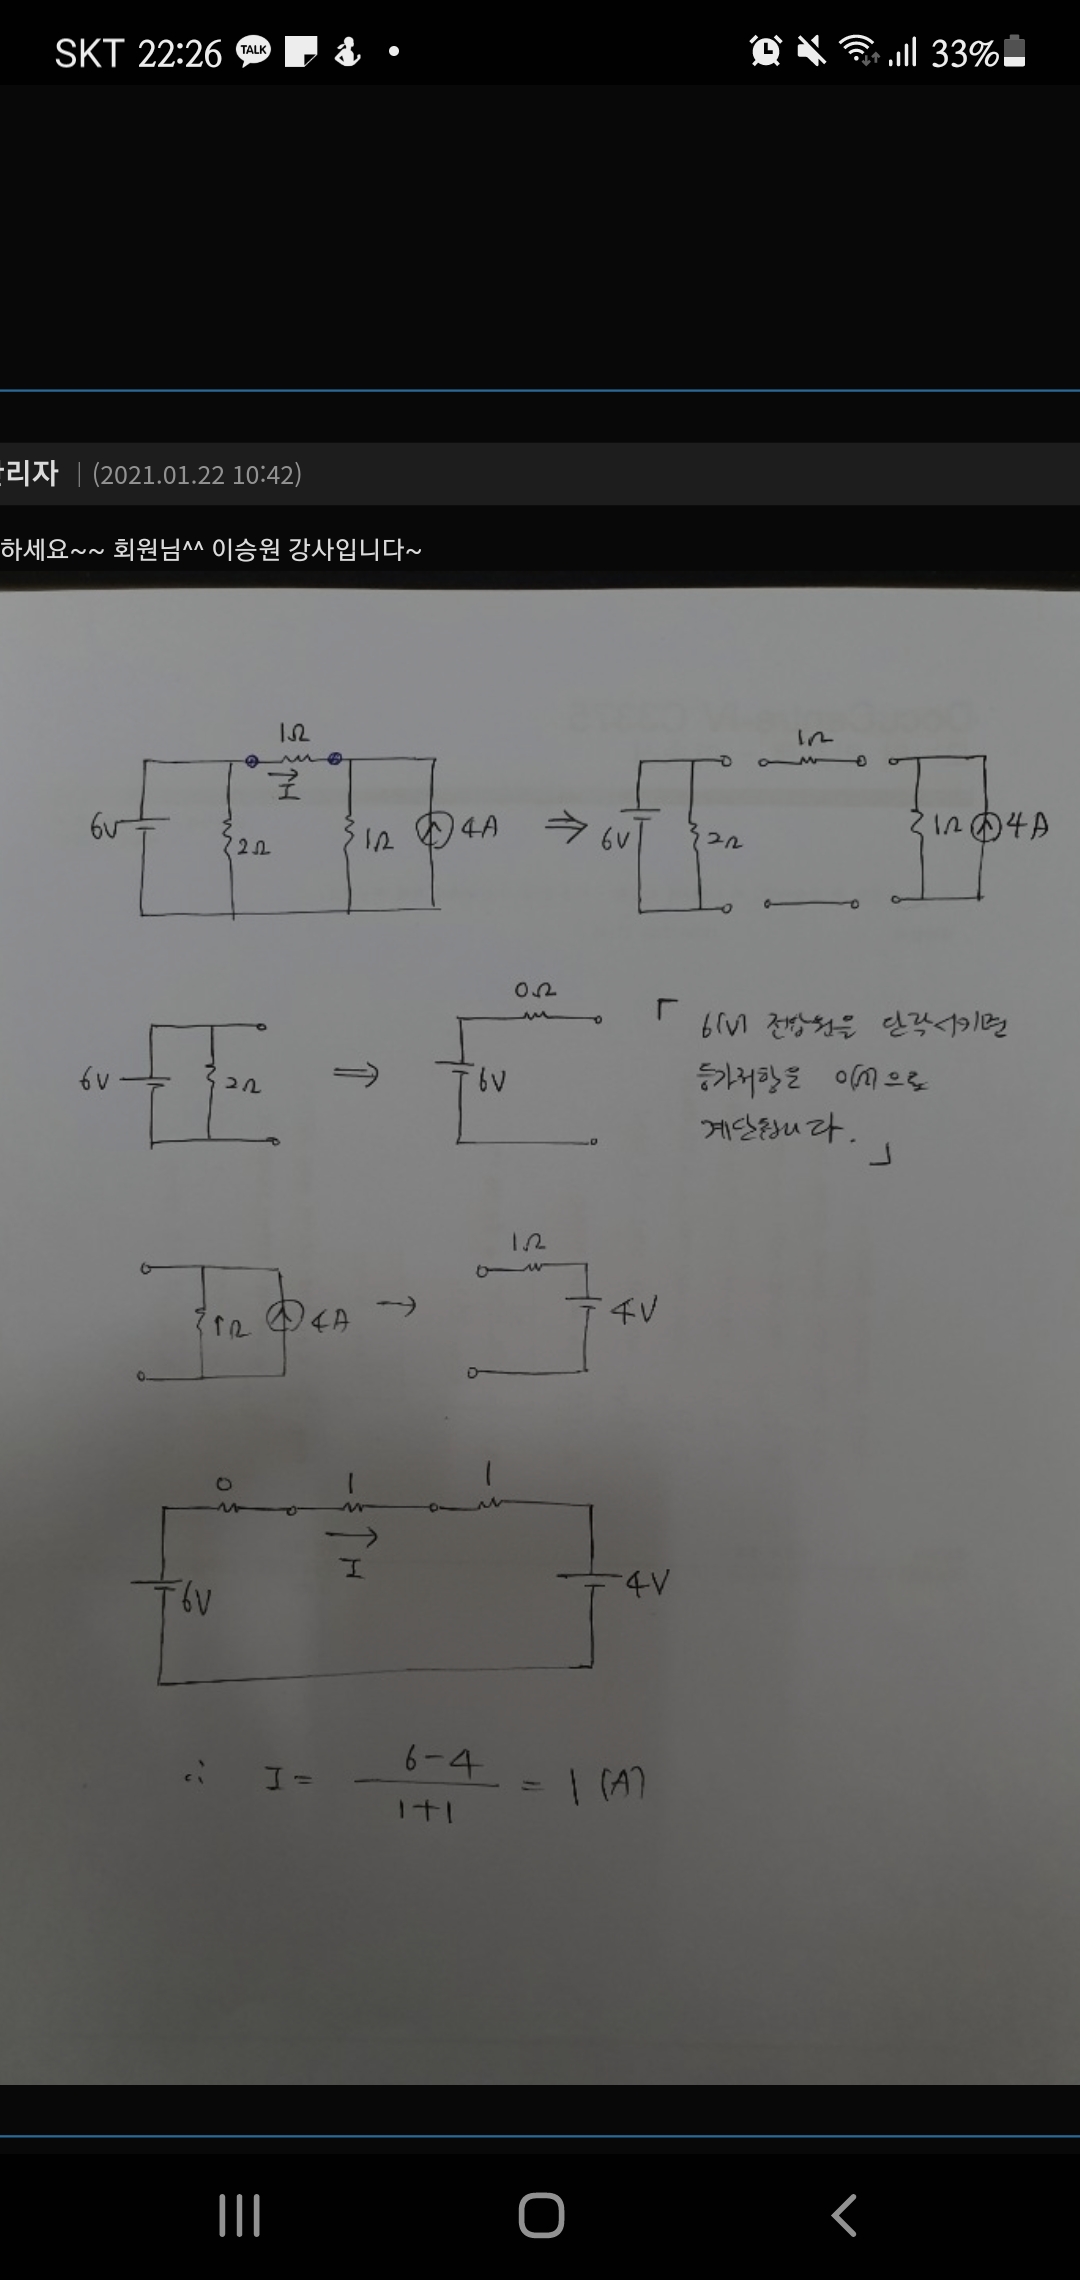 SKT 22:26 TALK 33%
리자 | (2021.01.22 10:42)
하세요~~ 회원님^^ 이승원 강사입니다~
1Ω 1Ω
I
6V 2Ω 1Ω 4A ⇒ 6V 2Ω 1Ω 4A
0Ω
6V 2Ω ⇒ 6V
「 6(V) 전압원을 단락시키면
등가저항을 0(Ω)으로
계산합니다. 」
1Ω
1Ω 4A → 4V
0 1 1
I
6V 4V
∴ I = 6-4 / 1+1 = 1 (A)